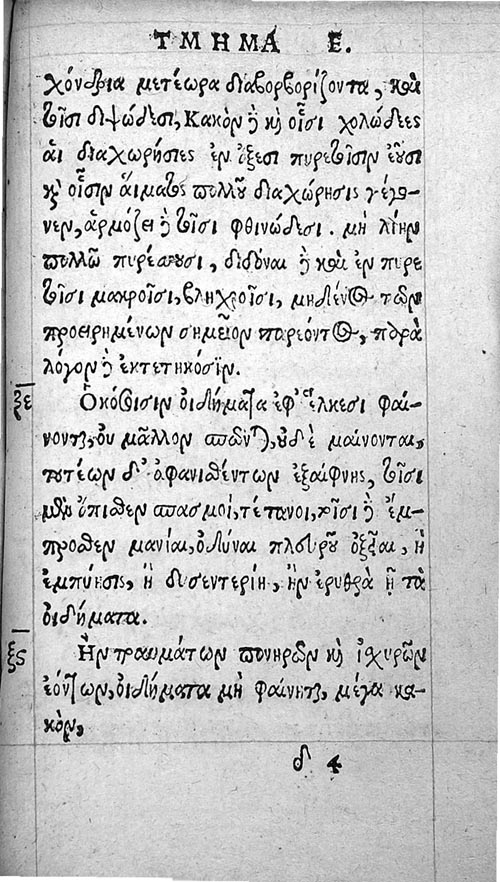 ΤΜΗΜΑ Ε.
χόνδρια μετέωρα διαβορβορίζοντα, καὶ
τοῖσι διψώδεσι, Κακὸν δὲ καὶ οἷσι χολώδεες
αἱ διαχωρήσιες ἐν ὀξέσι πυρετοῖσιν ἐοῦσι
καὶ οἷσιν αἵματος πολλοῦ διαχώρησις γέγο-
νεν, ἁρμόζει δὲ τοῖσι φθινώδεσι. μὴ λίην
πολλῷ πυρέσσουσι, διδόναι δὲ καὶ ἐν πυρε
τοῖσι μακροῖσι, βληχροῖσι, μηδένος τῶν
προειρημένων σημεῖον παρεόντος, παρὰ
λόγον δὲ ἐκτετηκόσιν.
ξε Ὁκόσοισιν οἰδήματα ἐφ' ἕλκεσι φαί-
νονται, οὐ μᾶλλον σπῶνται, οὐδὲ μαίνονται,
τουτέων δ' ἀφανισθέντων ἐξαίφνης, τοῖσι
μὲν ὄπισθεν σπασμοί, τέτανοι, τοῖσι δὲ ἔμ-
προσθεν μανίαι, ὀδύναι πλευροῦ ὀξεῖαι, ἢ
ἐμπύησις, ἢ δυσεντερίη, ἢν ἐρυθρὰ ᾖ τὰ
οἰδήματα.
ξϛ Ἢν τραυμάτων πονηρῶν καὶ ἰσχυρῶν
ἐόντων, οἰδήματα μὴ φαίνηται, μέγα κα-
κὸν,
δ 4